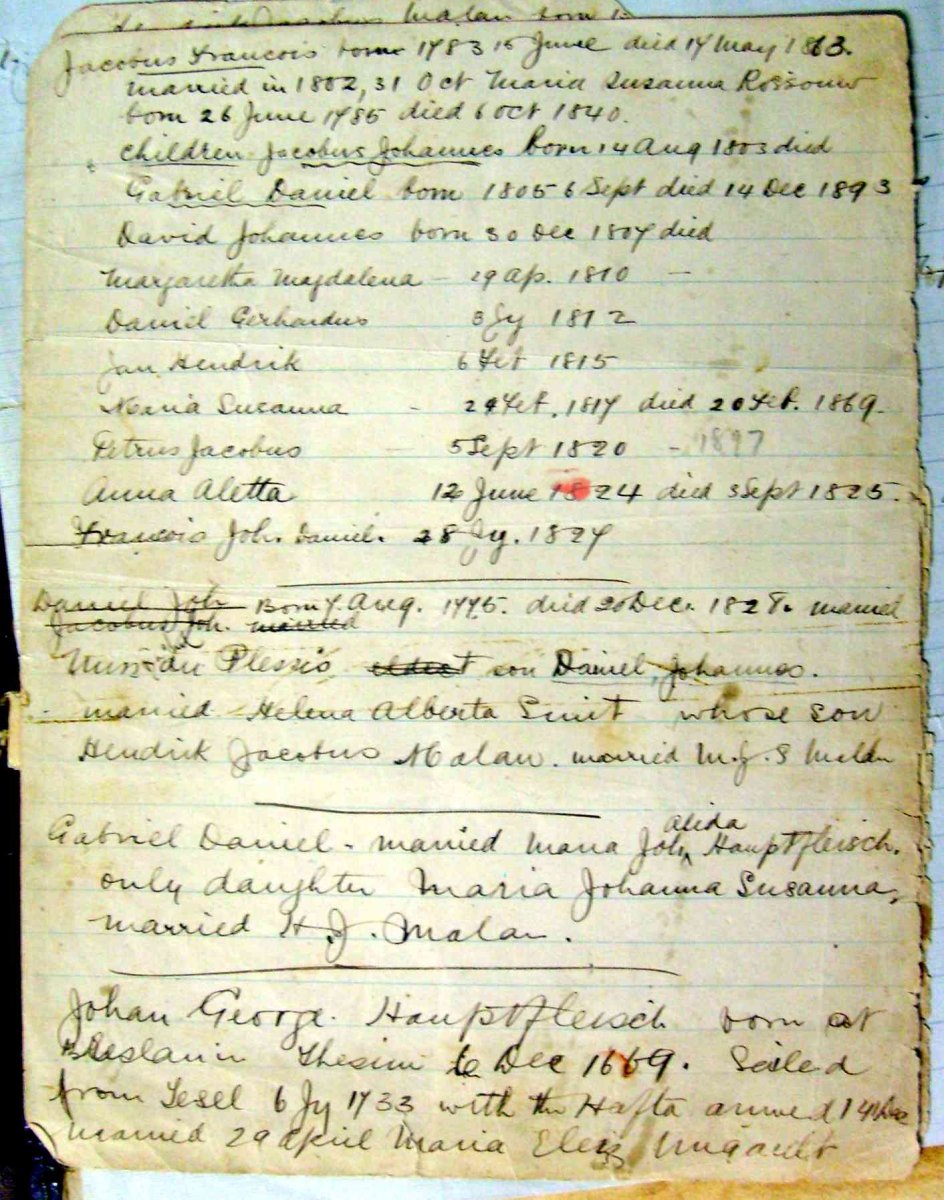 Jacobus Malan born
Jacobus Francois born 1783 15 June died 14 May 1863.
married in 1802, 31 Oct Maria Susanna Rossouw
born 26 June 1785 died 6 Oct 1840.
children Jacobus Johannes born 14 Aug 1803 died
Gabriel Daniel born 1805 6 Sept died 14 Dec 1893
David Johannes born 30 Dec 1807 died
Margaretha Magdalena - 19 Ap. 1810 -
Daniel Gerhardus 3 Jy 1812
Jan Hendrik 6 Feb 1815
Maria Susanna - 24 Feb. 1817 died 20 Feb. 1869.
Petrus Jacobus - 5 Sept 1820 - 1897
Anna Aletta 12 June 1824 died 3 Sept 1825.
Francois Joh. Daniel. 28 Jy. 1827
Daniel Joh Born 7. Aug. 1775. died 20 Dec. 1828. married
Jacobus Joh. married
du Plessis eldest son Daniel Johannes.
married Helena Alberta Smit whose son
Hendrik Jacobus Malan. married M.J.S Malan
Gabriel Daniel - married Maria Joh. Alida Hauptfleisch.
only daughter Maria Johanna Susanna,
married H.J. Malan.
Johan George Hauptfleisch born at
Dec 1669. Sailed
from Tesel 6 Jy 1733 with the Hafta arrived 14 Dec
married 29 April Maria Eliz